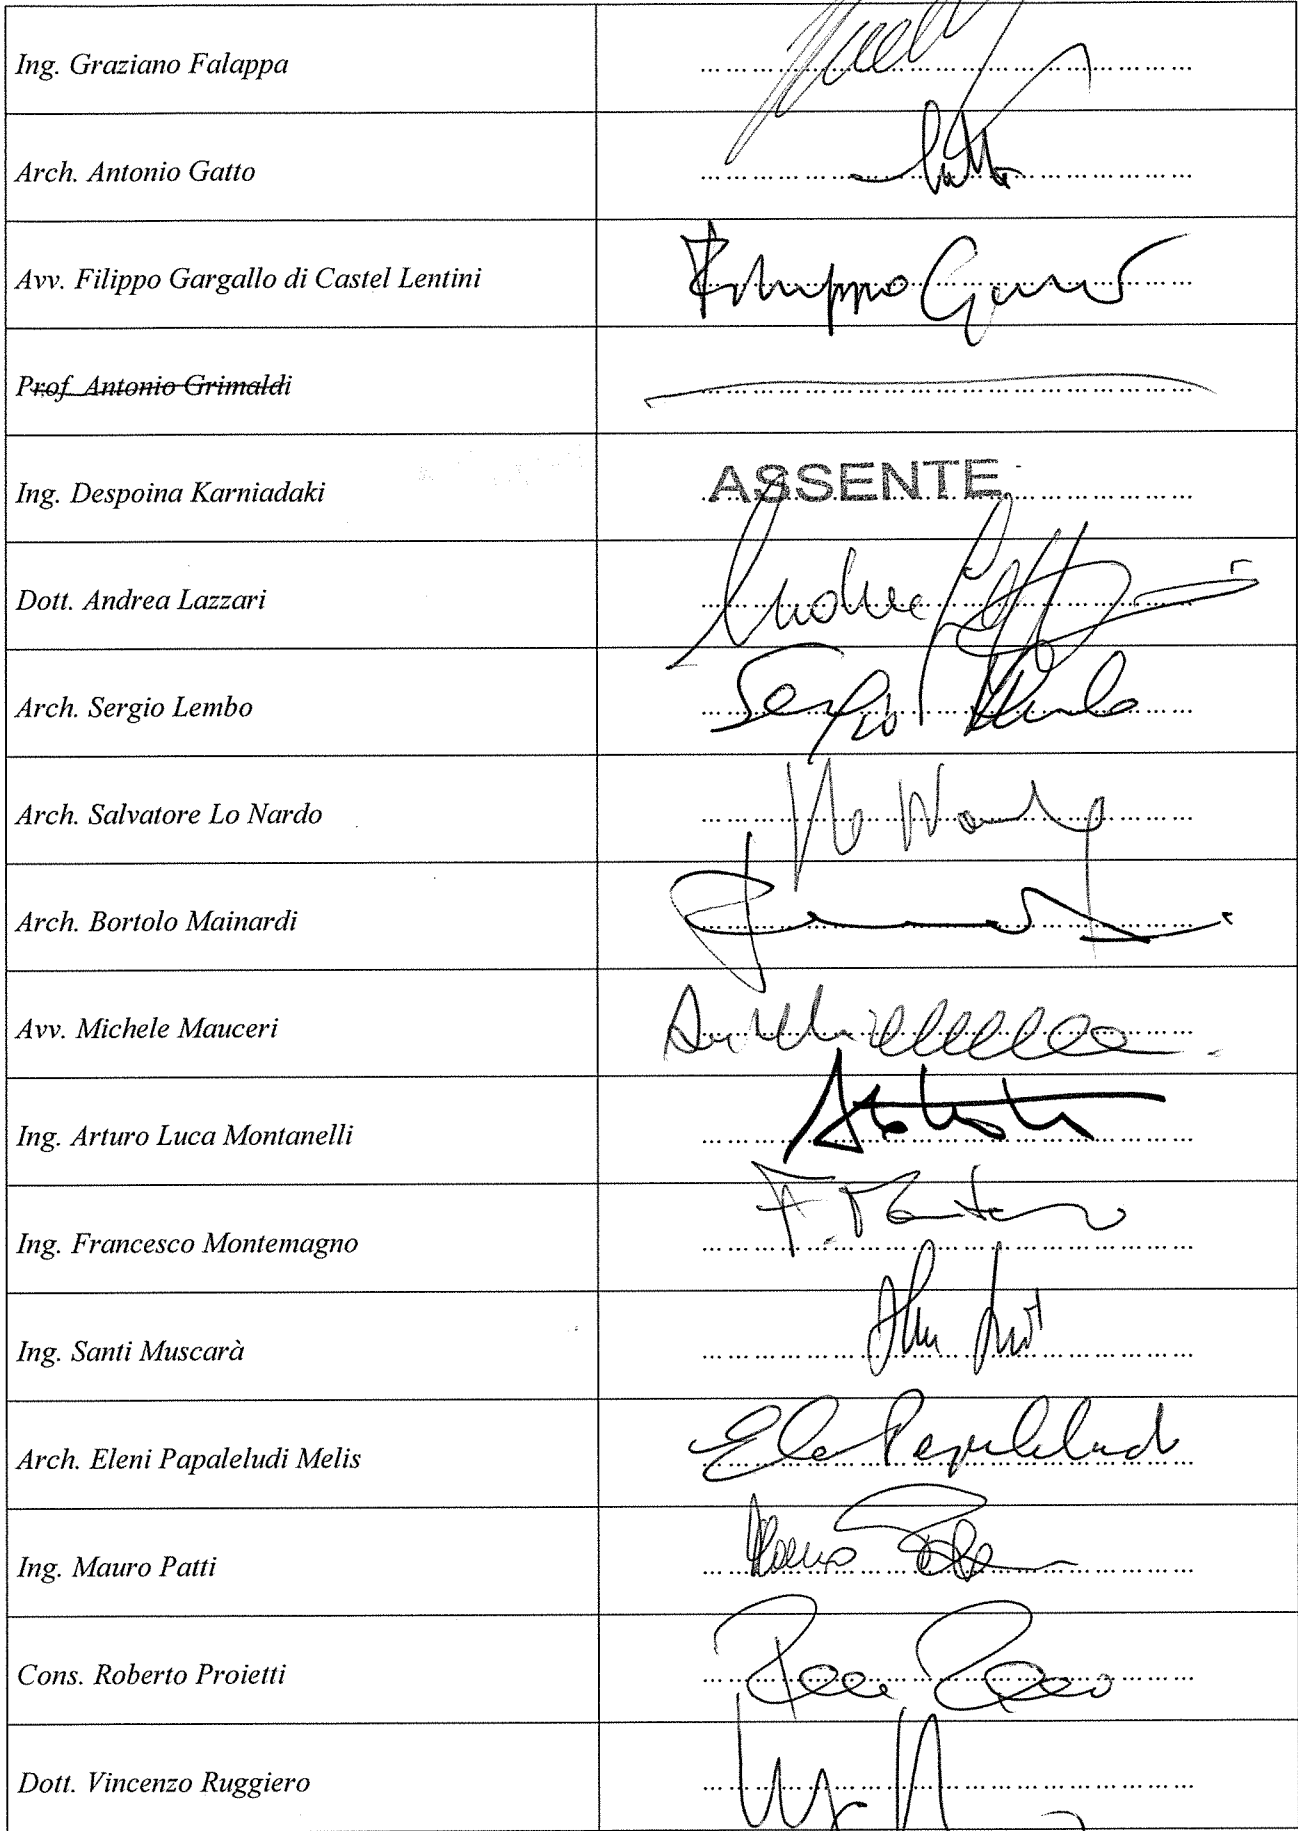 Ing. Graziano Falappa
Arch. Antonio Gatto
Avv. Filippo Gargallo di Castel Lentini
Filippo
Prof. Antonio Grimaldi
Ing. Despoina Karniadaki
ASSENTE
Dott. Andrea Lazzari
Andrea
Arch. Sergio Lembo
Sergio Lembo
Arch. Salvatore Lo Nardo
Lo Nardo
Arch. Bortolo Mainardi
Avv. Michele Mauceri
Ing. Arturo Luca Montanelli
Ing. Francesco Montemagno
Ing. Santi Muscarà
Arch. Eleni Papaleludi Melis
Ing. Mauro Patti
Mauro
Cons. Roberto Proietti
Dott. Vincenzo Ruggiero